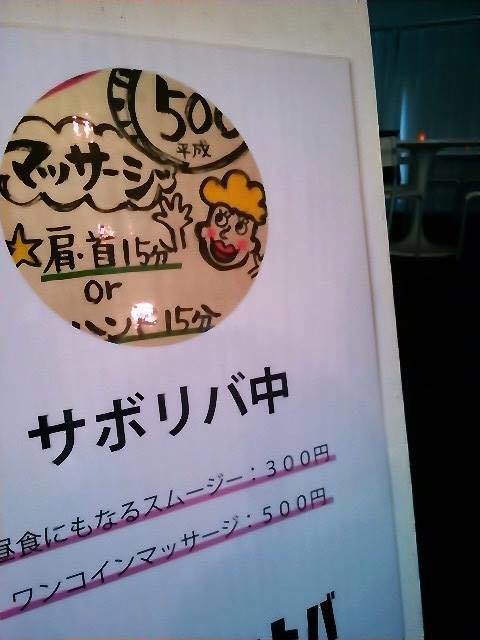 500
平成
マッサージ
☆肩・首15分
or
ハンド15分
サボリバ中
昼食にもなるスムージー：300円
ワンコインマッサージ：500円